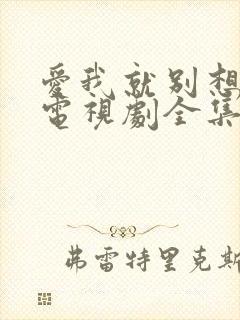 愛我就別想
電視劇全集
弗雷特里克斯